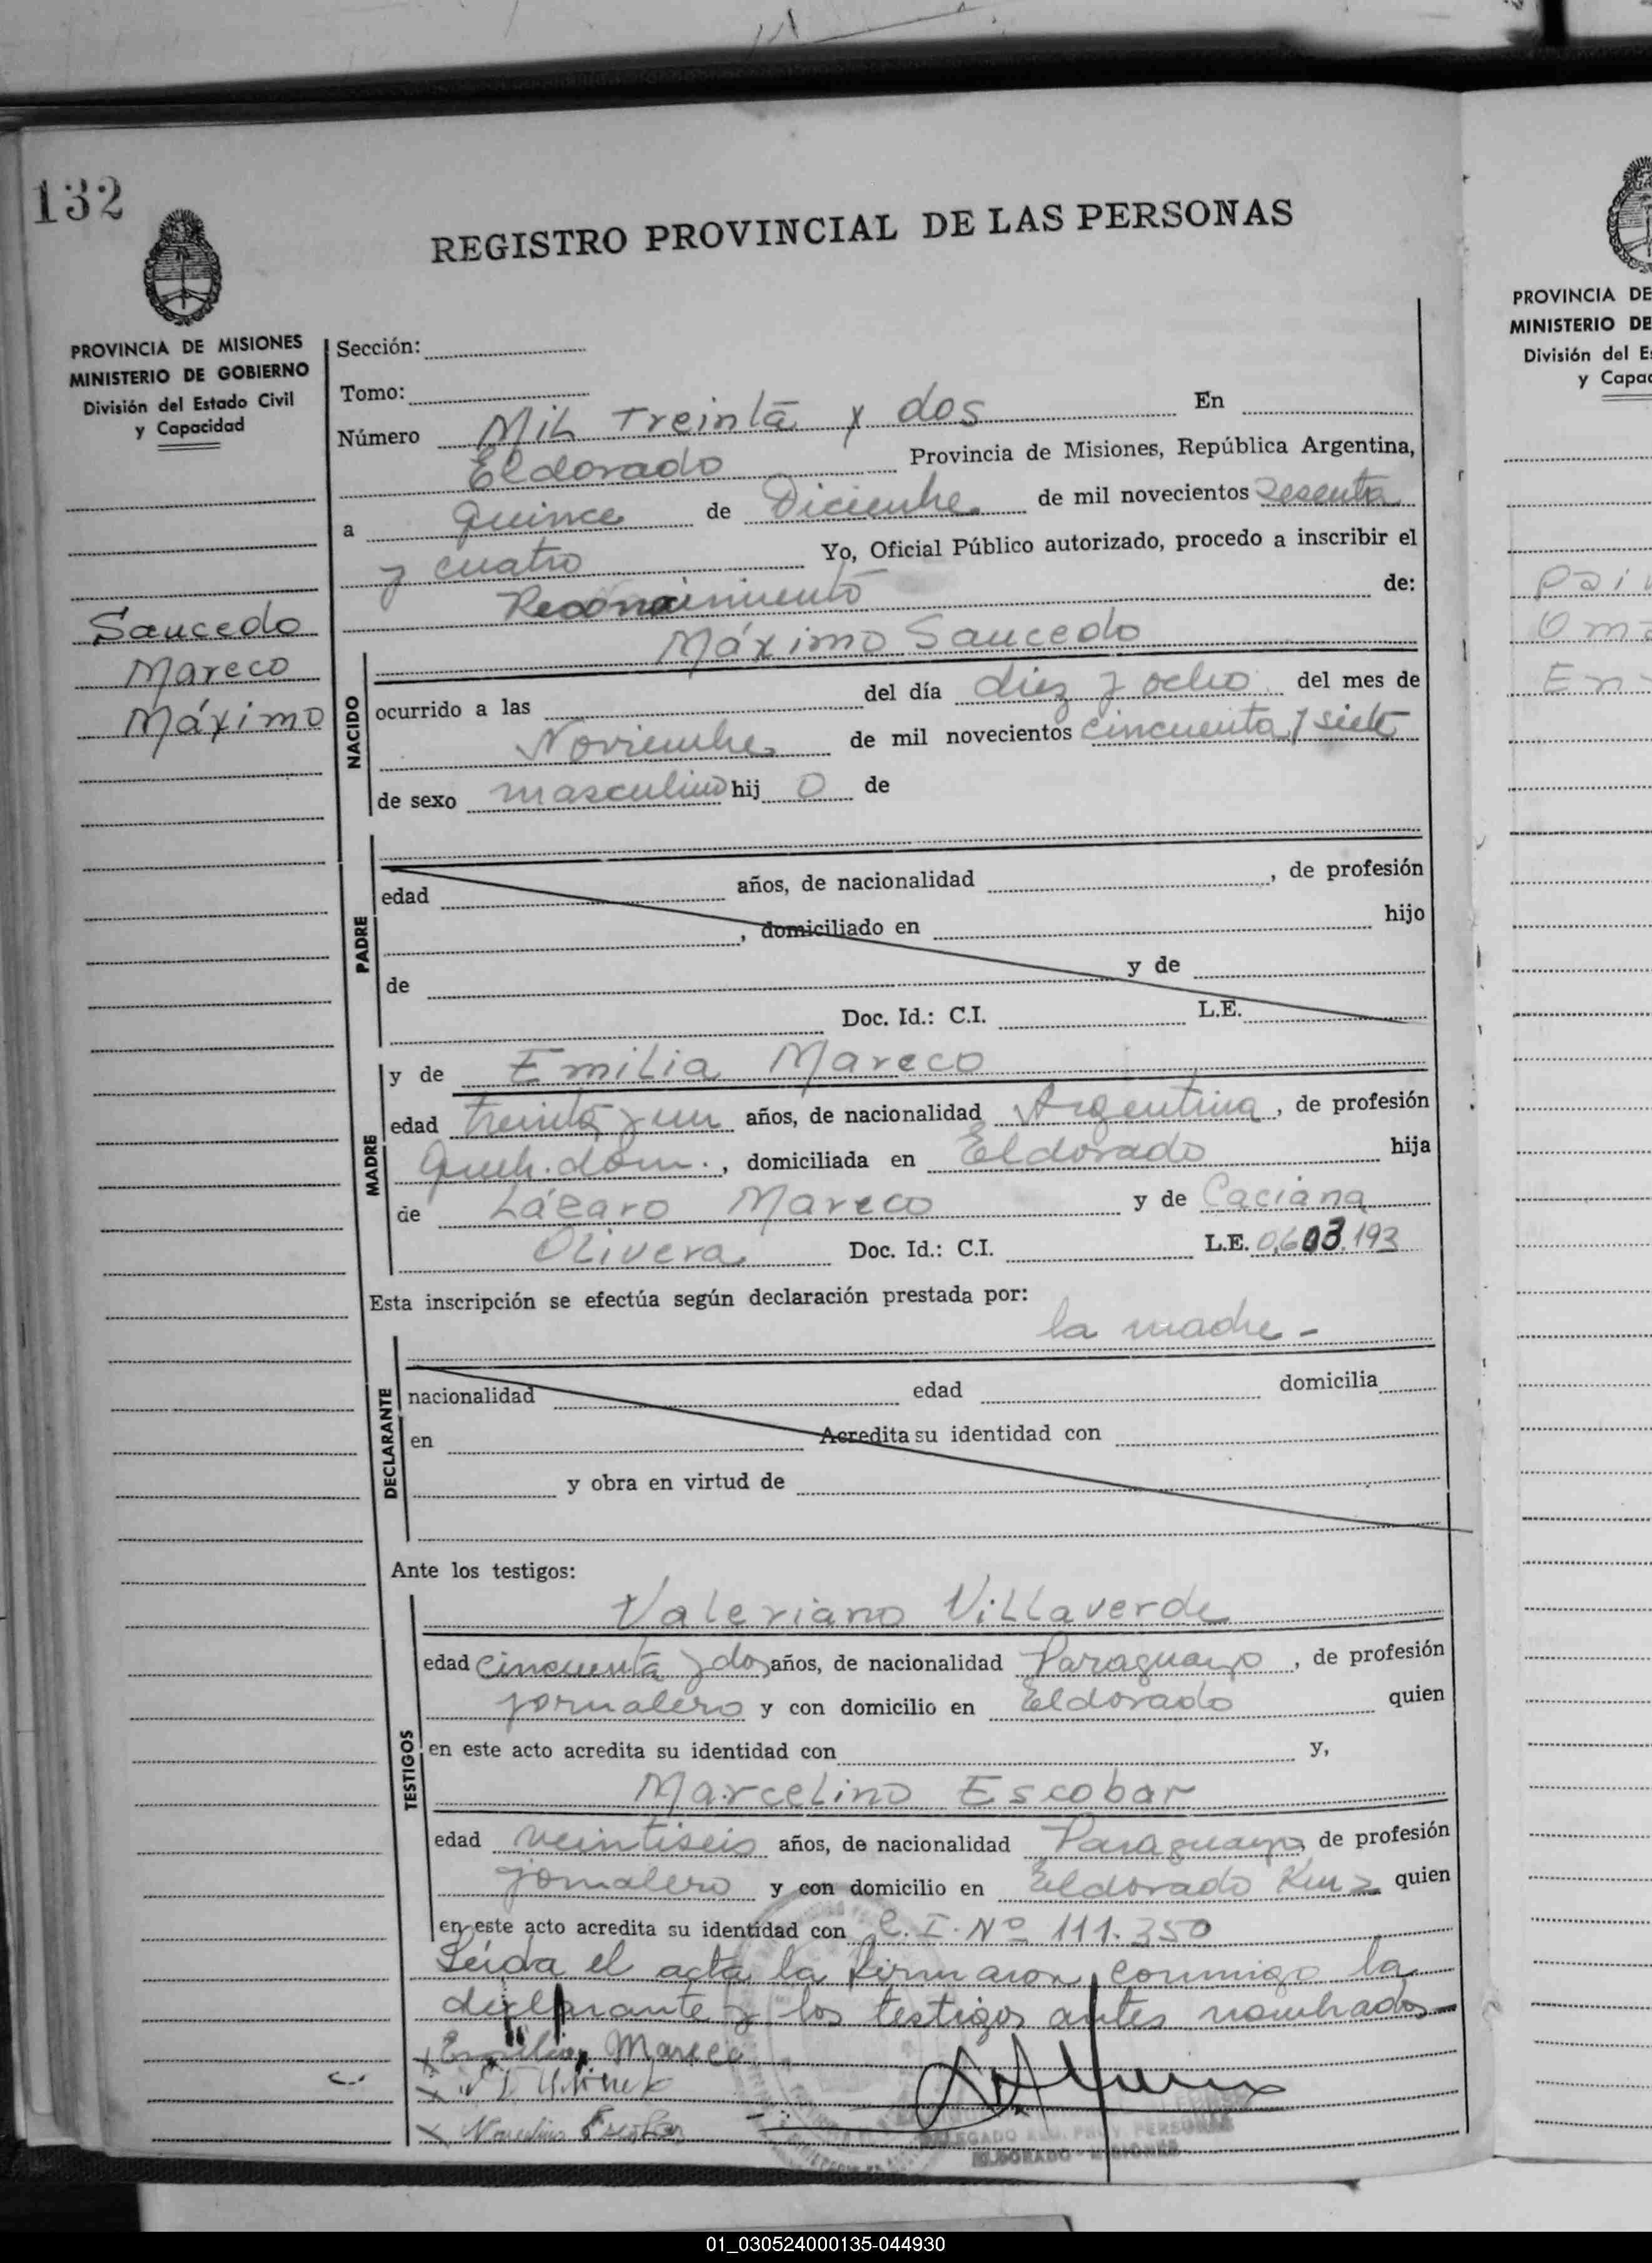 132
REGISTRO PROVINCIAL DE LAS PERSONAS
PROVINCIA DE MISIONES
MINISTERIO DE GOBIERNO
División del Estado Civil
y Capacidad
Saucedo
Mareco
Máximo
Sección:
Tomo:
Número Mil Treinta y dos En
Eldorado Provincia de Misiones, República Argentina,
a quince de Diciembre de mil novecientos sesenta
y cuatro Yo, Oficial Público autorizado, procedo a inscribir el
Reconocimiento de:
Máximo Saucedo
NACIDO
ocurrido a las del día diez y ocho del mes de
Noviembre de mil novecientos cincuenta y siete
de sexo masculino hij o de
PADRE
edad años, de nacionalidad , de profesión
, domiciliado en hijo
de y de
Doc. Id.: C.I. L.E.
MADRE
y de Emilia Mareco
edad treinta y un años, de nacionalidad Argentina, de profesión
queh. dom., domiciliada en Eldorado hija
de Lázaro Mareco y de Caciana
Olivera Doc. Id.: C.I. L.E. 0.603.193
Esta inscripción se efectúa según declaración prestada por:
la madre -
DECLARANTE
nacionalidad edad domicilia
en Acredita su identidad con
y obra en virtud de
Ante los testigos:
TESTIGOS
Valeriano Villaverde
edad cincuenta y dos años, de nacionalidad Paraguayo, de profesión
jornalero y con domicilio en Eldorado quien
en este acto acredita su identidad con y,
Marcelino Escobar
edad veintiseis años, de nacionalidad Paraguayo, de profesión
jornalero y con domicilio en Eldorado Km 2 quien
en este acto acredita su identidad con C.I. Nº 111.350
Leída el acta la firmaron conmigo la
declarante y los testigos antes nombrados-
x Emilia Mareco
x
x Marcelino Escobar
DELEGADO REG. PROV. PERSONAS
ELDORADO - MISIONES
PROVINCIA DE
MINISTERIO DE
División del E
y Capac
01_030524000135-044930